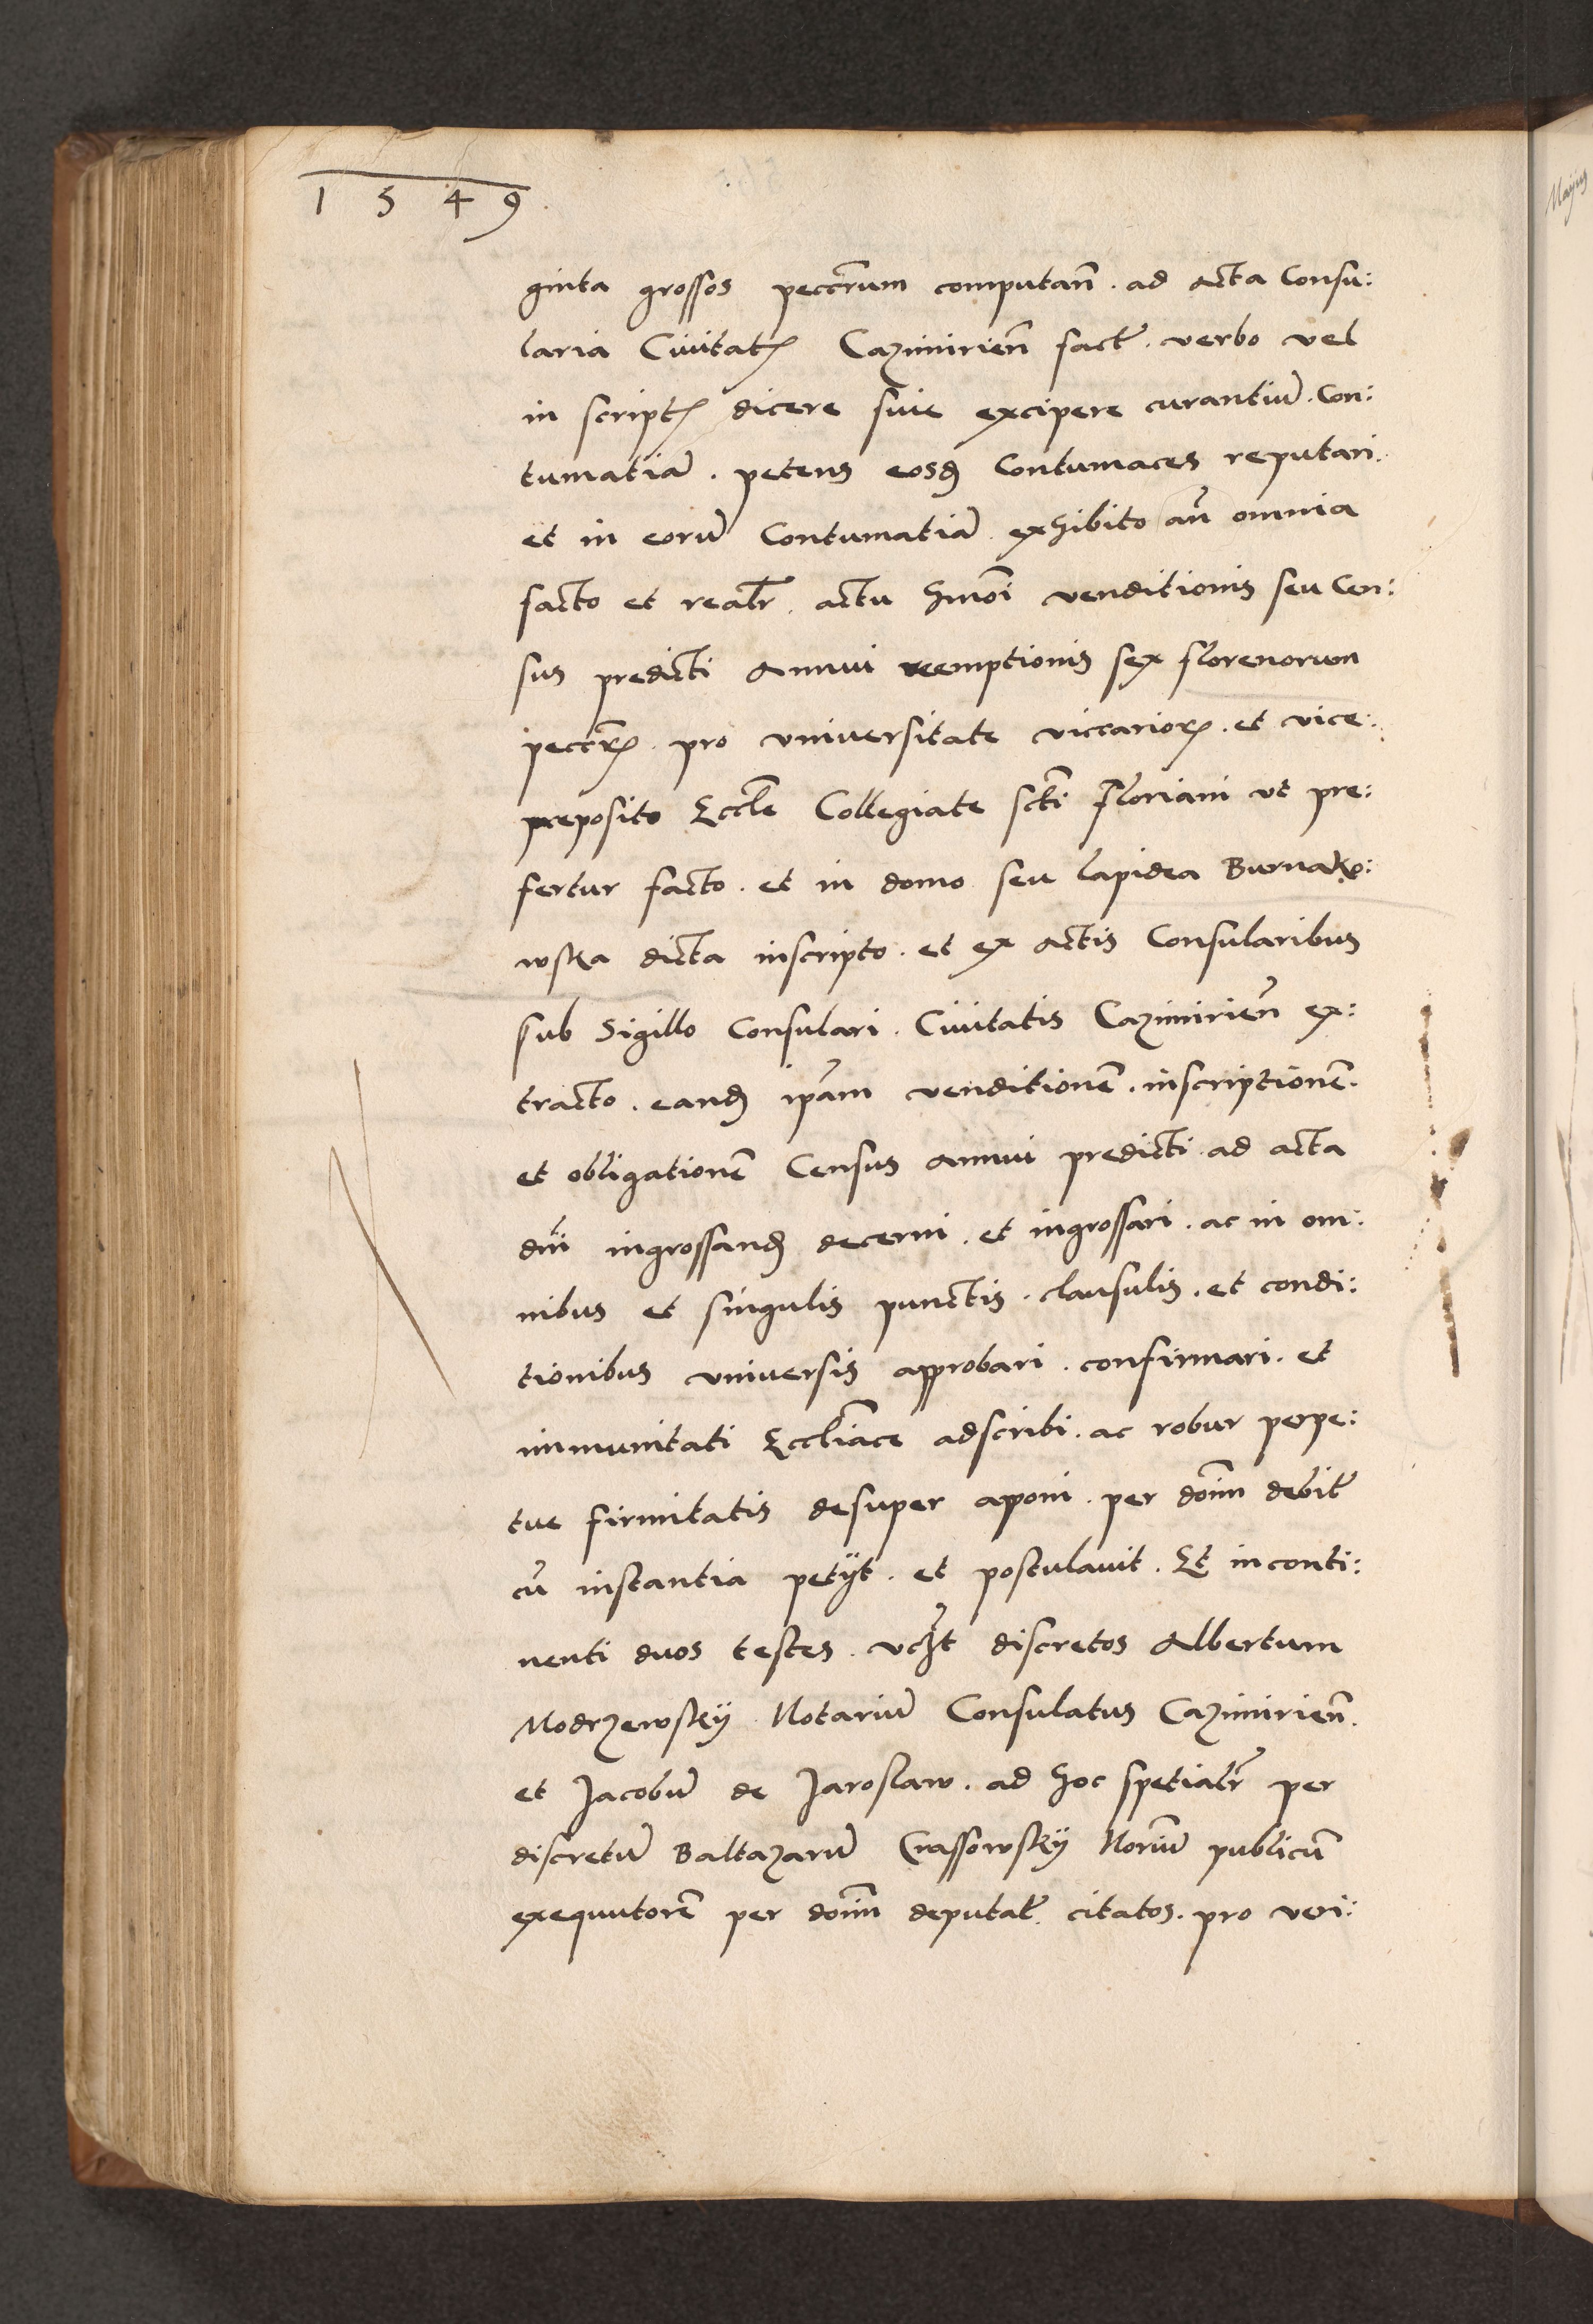 1 5 4 9
ginta grossos peccrum computan̄. ad acta Consu:
laria Civitatꝭ Cazimirien̄ fact̄. verbo vel
in scriptꝭ dicere sive excipere curantiū. Con:
tumatiā. petens eosꝗ Contumaces reputari.
et in eorū Contumatiā. exhibito an̄ omnia
facto et realr̄. actu hmōi venditionis seu Cen:
sus predicti Annui reemptionis sex florenorum
peccrꝝ. pro universitate viccarioꝝ. et vice:
preposito Eccl̄e Collegiate scti Floriani ut pre:
fertur facto. et in domo seu lapidea Burnako:
wska dicta inscripto. et ex actis Consularibus
sub Sigillo Consulari. Civitatis Cazimirien̄ ex:
tracto. eanꝺ ip̄am venditionē. inscriptionē.
et obligationē Census Annui predicti. ad acta
dn̄i ingrossanꝺ decerni. et ingrossari. ac in om:
nibus et singulis punctis. clausulis. et condi:
tionibus universis approbari. confirmari. et
immunitati Eccl̄iace adscribi. ac robur perpe:
tue firmitatis desuper aponi. per doīm debit̄
cū instantia petÿt. et postulavit. Et in conti:
nenti duos testes. vcꝫt discretos Albertum
Modrzewskÿ Notariū Consulatus Cazimirien̄.
et Jacobū de Jaroslaw. ad hoc spetialr̄ per
discretū Baltazarū Crassowskÿ Noriū publicū
exequutorē per doīm deputat̄. citatos. pro veri:
Mayus